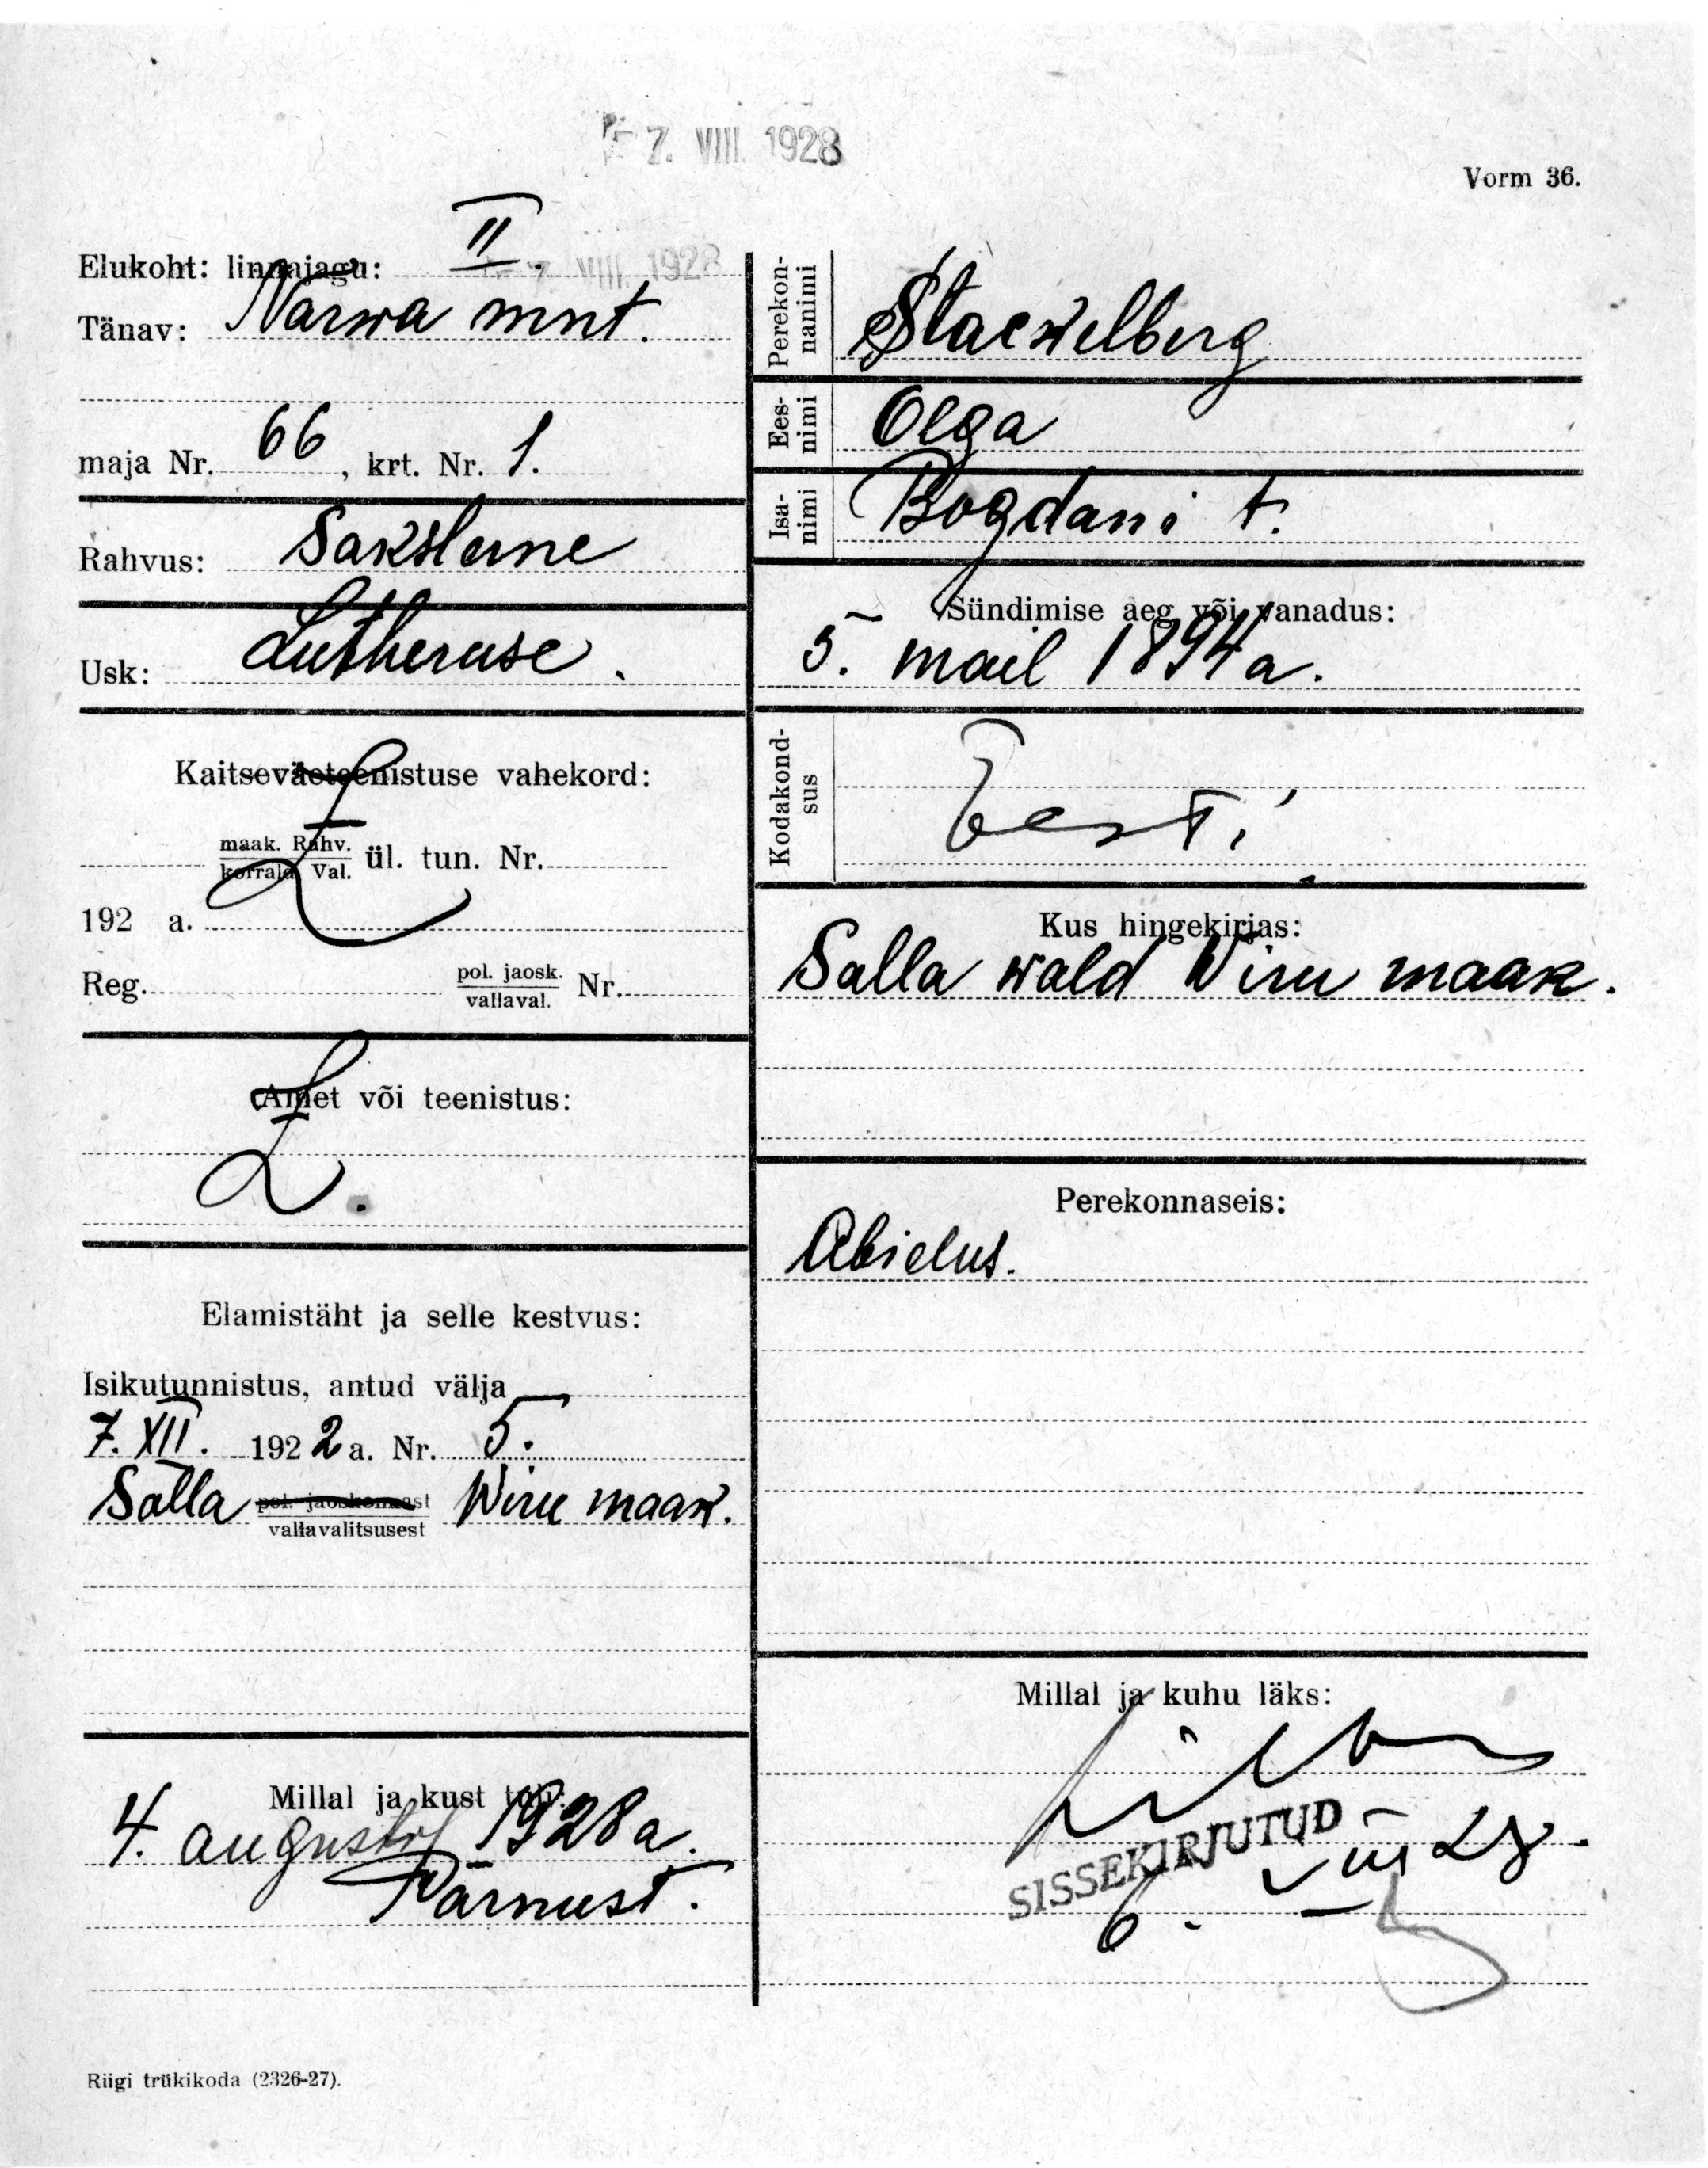 7. VIII. 1928
Vorm 36.
Elukoht: linnajagu: II. 7. VIII. 1928
Tänav: Narwa mnt.
maja Nr. 66, krt. Nr. 1.
Rahvus: Sakslane
Usk: Lutheruse.
Kaitseväeteenistuse vahekord:
maak. Rahv.
korrald. Val. ül. tun. Nr.
192 a.
Reg. pol. jaosk.
vallaval. Nr.
Amet või teenistus:
Elamistäht ja selle kestvus:
Isikutunnistus, antud välja
7. XII. 1922 a. Nr. 5.
Salla pol. jaoskonnast
vallavalitsusest Wiru maak.
Millal ja kust tuli:
4. augustil 1928 a.
Pärnust.
Perekonnanimi
Stackelberg
Eesnimi
Olga
Isanimi
Bogdani t.
Sündimise aeg või vanadus:
5. mail 1894 a.
Kodakondsus
Eesti
Kus hingekirjas:
Salla wald Wiru maak.
Perekonnaseis:
Abielus.
Millal ja kuhu läks:
SISSEKIRJUTUD
6. VIII 28.
Riigi trükikoda (2326-27).